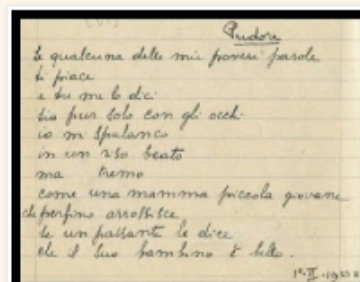 Pudore
Se qualcuna delle mie povere parole
ti piace
e tu me lo dici
sia pur solo con gli occhi
io mi spalanco
in un riso beato
ma tremo
come una mamma piccola giovane
che perfino arrossisce
se un passante le dice
che il suo bambino è bello.
1° II 1933